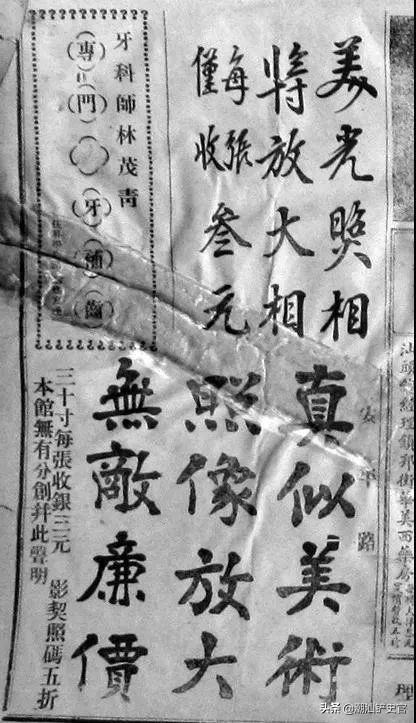 美光照相
特放大相
每張僅收叁元
安平路
真似美術
照像放大
無敵廉價
三十寸每張收銀三元 影契照碼五折
本館無有分創幷此聲明
牙科師林茂青
專門 牙補齒
汕頭總經理鎮邦街華美西藥房
理
头条 @潮汕铲史官